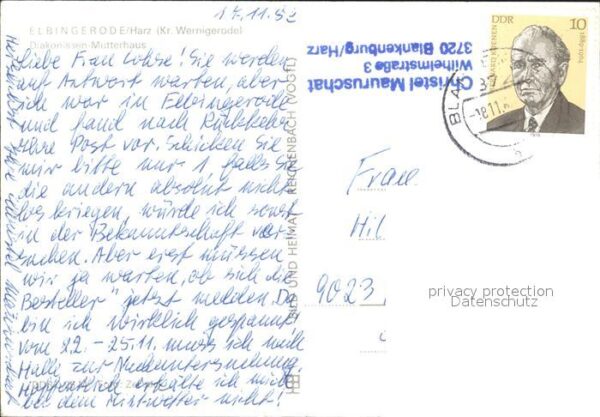 17.11.82
ELBINGERODE/Harz (Kr. Wernigerode)
Diakonissen-Mutterhaus
Liebe Frau Lohse! Sie werden
auf Antwort warten, aber
ich war in Elbingerode
und fand nach Rückkehr
Ihre Post vor. Schicken Sie
mir bitte nur 1, falls Sie
die andern absolut nicht
los kriegen, würde ich sonst
in der Bekanntschaft ver-
suchen. Aber erst müssen
wir ja warten, ob sich die
"Besteller" jetzt melden. Da
bin ich wirklich gespannt.
Vom 22. - 25.11. muss ich nach
Halle zur Nachuntersuchung.
Hoffentlich erkälte ich mich
bei dem Mistwetter nicht!
Christel Mauruschat
BILD UND HEIMAT REICHENBACH (VOGTL)
Christel Mauruschat
Wilhelmstraße 3
3720 Blankenburg/Harz
DDR 10
1889-1969
BLA
37
-18.11.
Frau
Hil
9023
privacy protection
Datenschutz